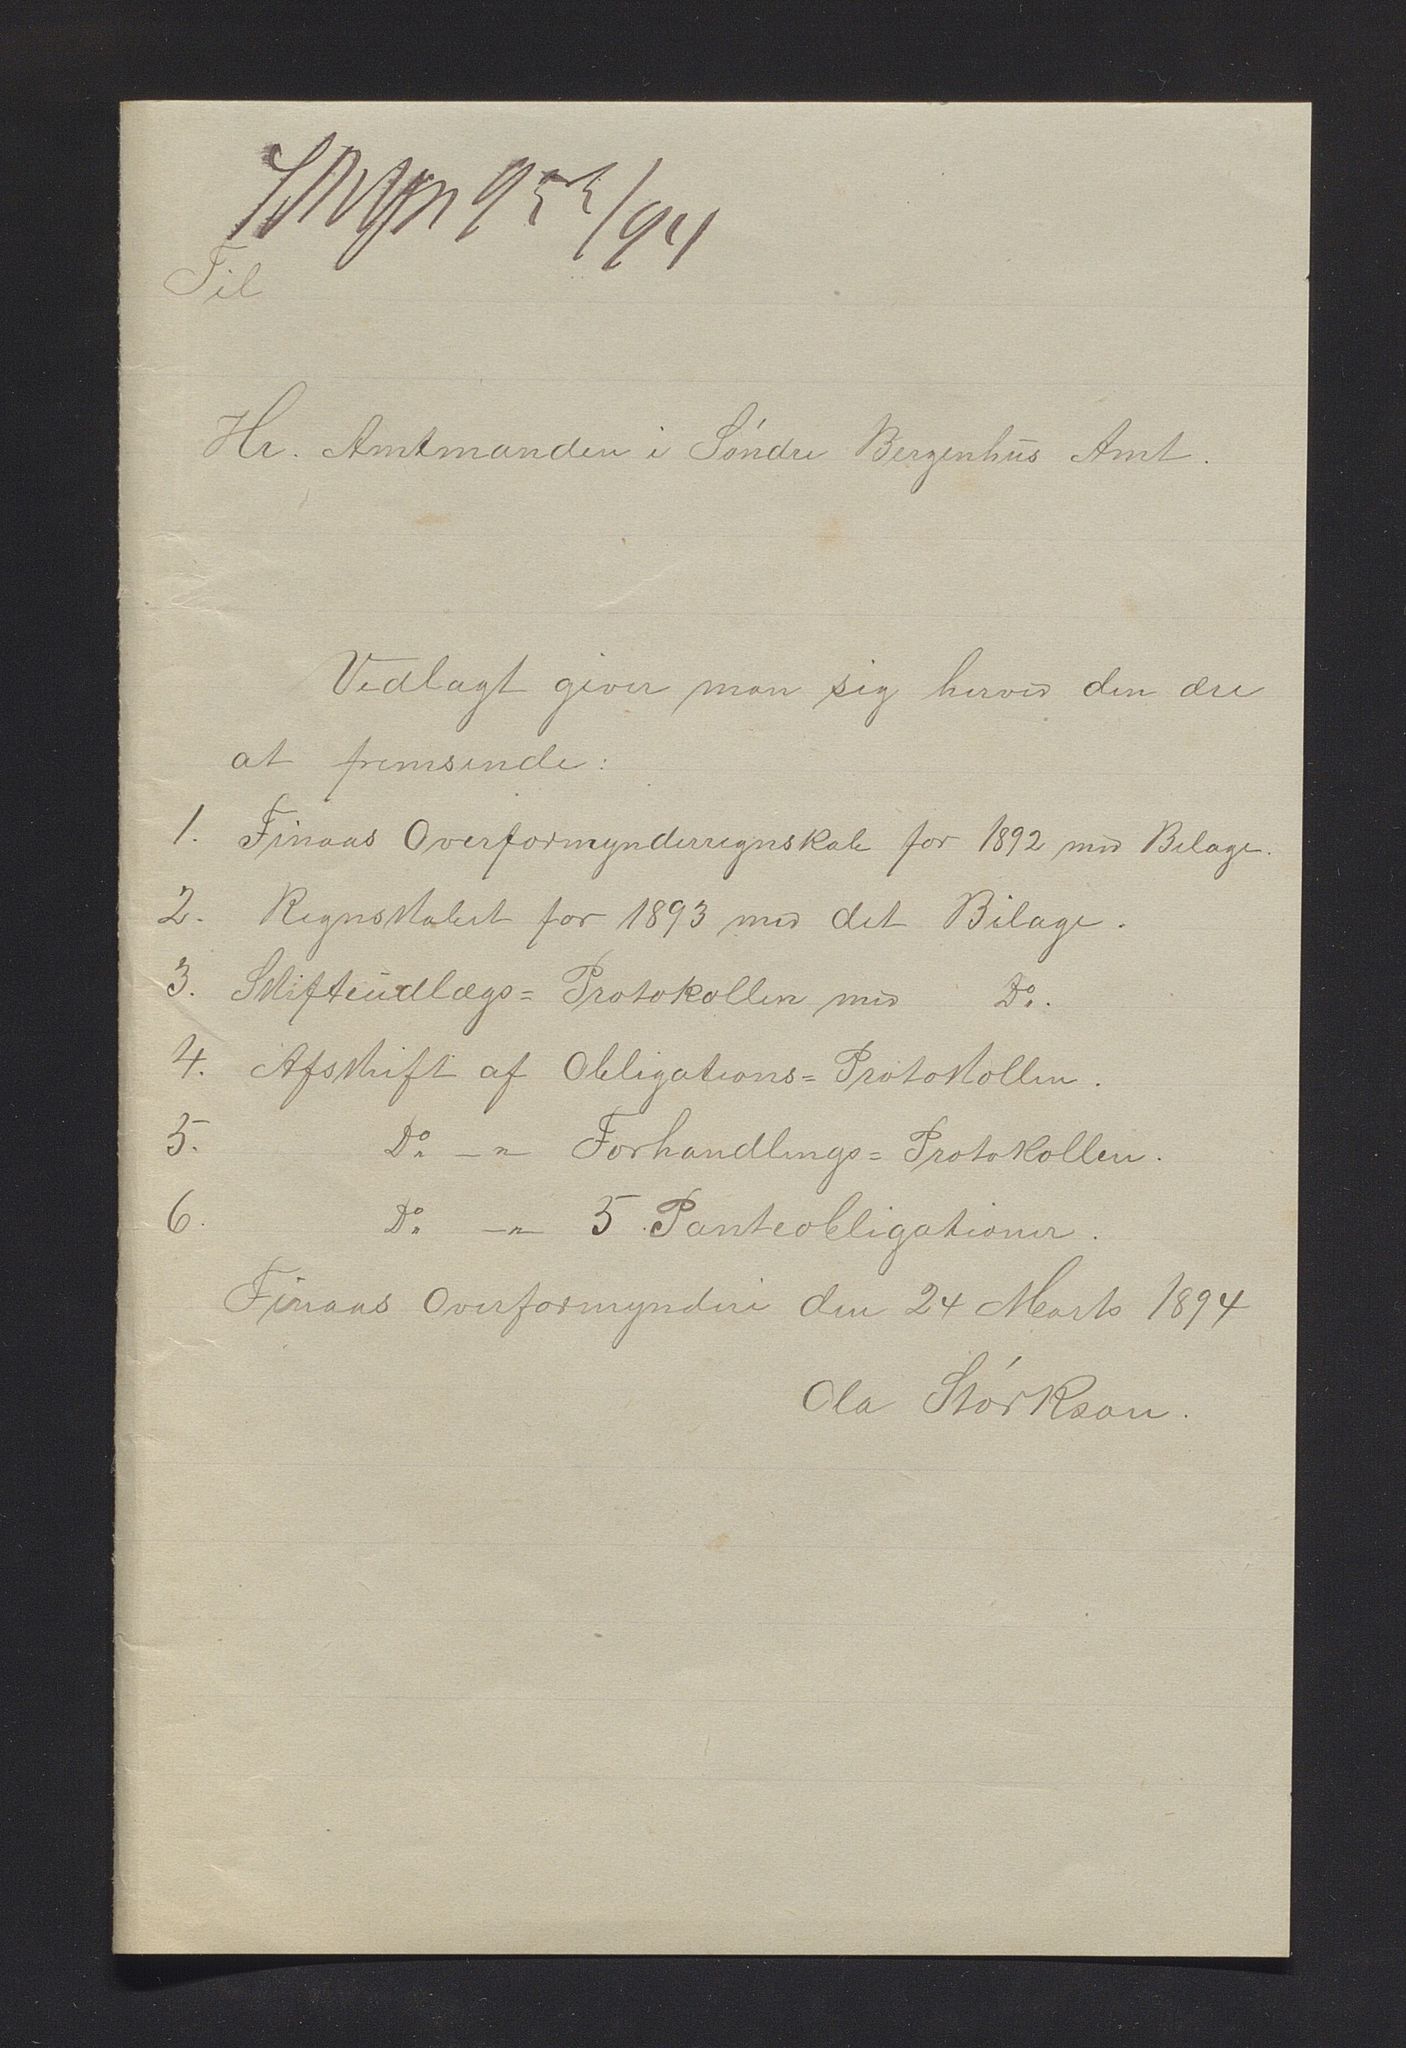 955/94
Til
Hr. Amtmanden i Söndre Bergenhus Amt.
Vedlagt giver man sig herved den ære
at fremsende:
1. Finaas Overformynderregnskab for 1892 med Bilage.
2. Regnskabet for 1893 med det Bilage.
3. Skifteudlægs= Protokollen med Do.
4. Afskrift af Obligations= Protokollen.
5. Do -"- Forhandlings= Protokollen.
6. Do -"- 5 Panteobligationer.
Finaas Overformynderi den 24 Marts 1894
Ola Störkson.